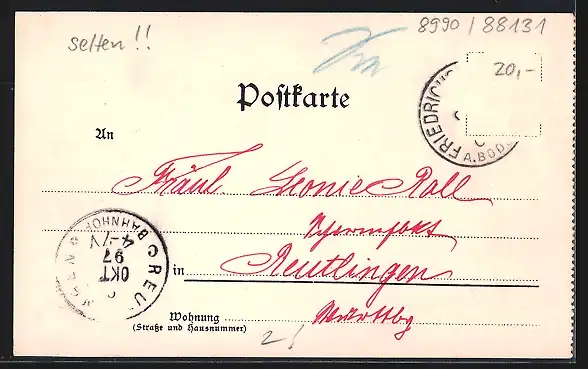 selten!!
8990 / 88131
20,-
Postkarte
FRIEDRICHS
A. BOD.
An
Fräul. Leonie Roll
in Reutlingen
Württbg
Wohnung
(Straße und Hausnummer)
REU
BAHNHOF
4-
97
OKT
2